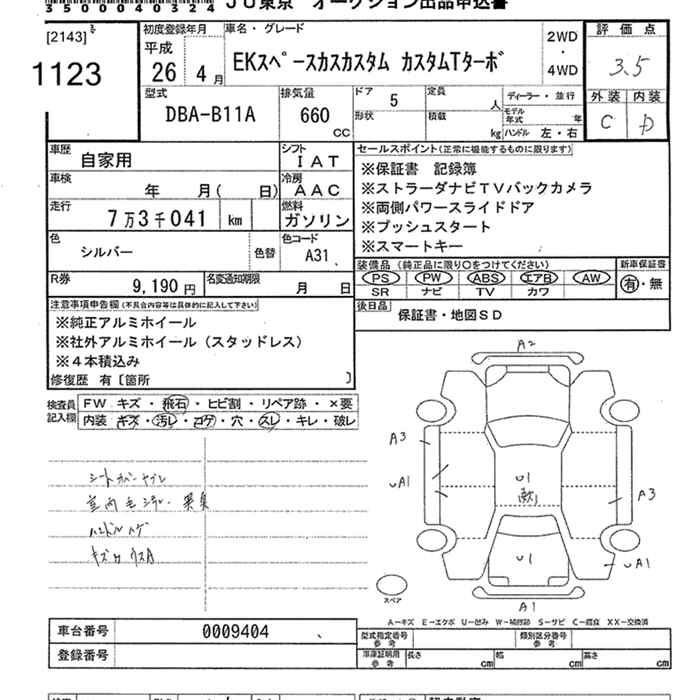 3 5 0 0 0 4 0 3 2 4 JU東京 オークション出品申込書
[2143]
1123
初度登録年月 車名・グレード 評価点
平成 26年 4月
EKスペースカスカスタム カスタムTターボ
2WD ・ 4WD
3.5
外装 内装
C D
型式 排気量 ドア 定員 ディーラー・並行
DBA-B11A 660 CC 5 人 モデル年式 年
形状 積載 kg ハンドル 左・右
車歴 自家用 シフト IAT
セールスポイント(正常に機能するものに限ります)
車検 年 月( 日) 冷房 AAC
※保証書 記録簿
※ストラーダナビTVバックカメラ
走行 7万3千041 km 燃料 ガソリン
※両側パワースライドドア
※プッシュスタート
※スマートキー
色 シルバー 色替 色コード A31
装備品(純正品に限り○をつけてください) 新車保証書
PS PW ABS エアB AW 有・無
SR ナビ TV カワ
R券 9,190円 名変通知期限 月 日
後日品 保証書・地図SD
注意事項申告欄(不具合内容等は具体的に記入して下さい)
※純正アルミホイール
※社外アルミホイール(スタッドレス)
※4本積込み
修復歴 有〔箇所 〕
検査員記入欄 FW キズ・飛石・ヒビ割・リペア跡・×要
内装 キズ・汚レ・コゲ・穴・スレ・キレ・破レ
シートカバーヤブレ
ハンドルハゲ
A2
A3
A1
U1
A3
U1
A1
A1
スペア
A-キズ E-エクボ U-凹み W-補修跡 S-サビ C-腐食 XX-交換済
車台番号 0009404
型式指定番号 参考 類別区分番号 参考
登録番号
車庫証明用 参考 長さ cm 幅 cm 高さ cm